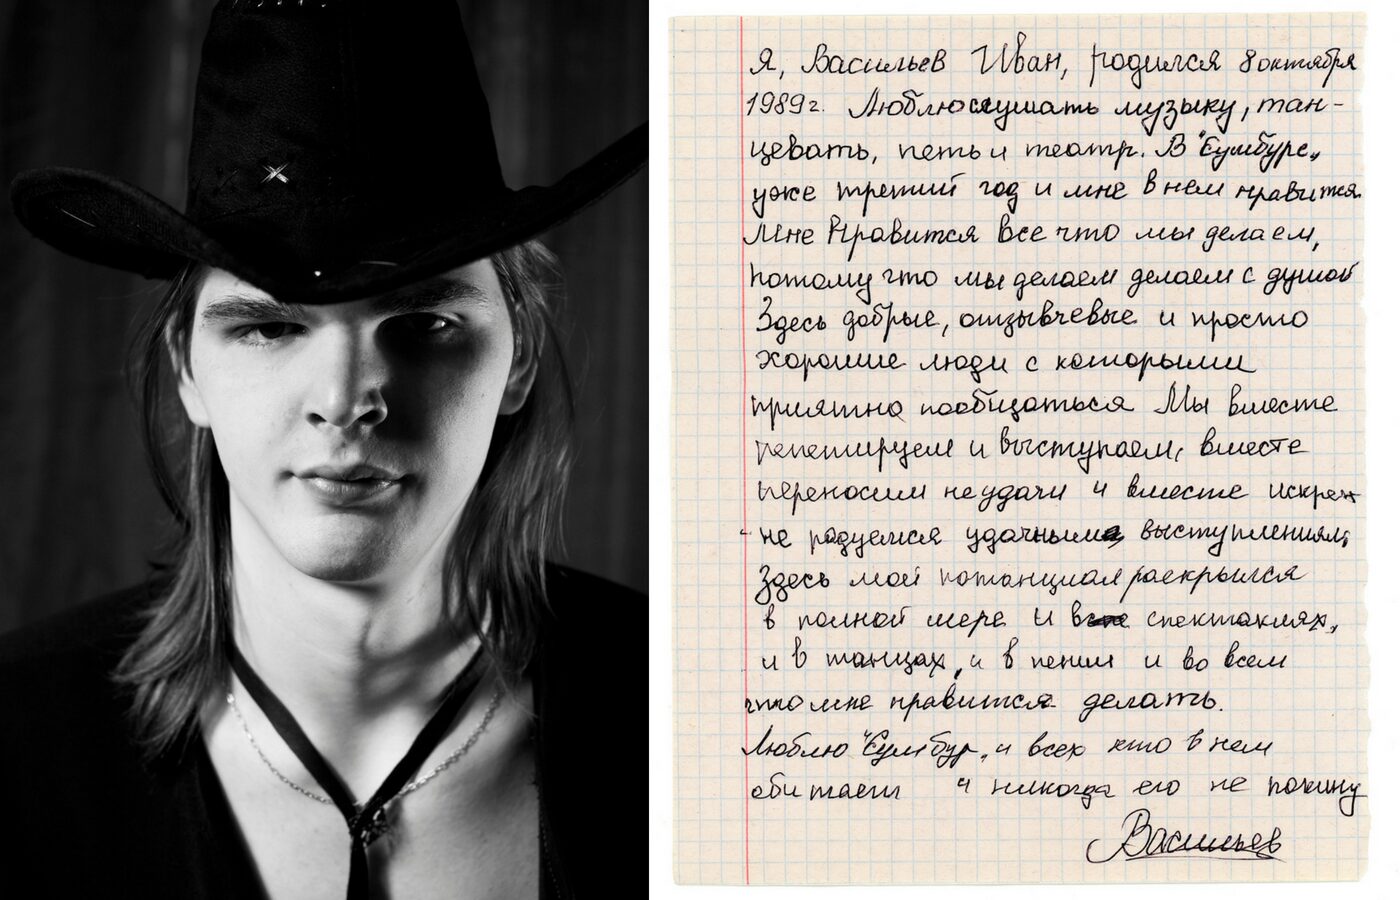 Я, Васильев Иван, родился 8 октября
1989г. Люблю слушать музыку, тан-
цевать, петь и театр. В "Сумбуре„
уже третий год и мне в нем нравится.
Мне Нравится все что мы делаем,
потому что мы делаем делаем с душой
Здесь добрые, отзывчевые и просто
хорошие люди с которыми
приятно пообщаться Мы вместе
репетируем и выступаем, вместе
переносим неудачи и вместе искрен
- не радуемся удачным выступлениям,
Здесь мой потанциал раскрылся
в полной мере и в спектаклях,
и в танцах, и в пении и во всем
что мне нравится делать.
Люблю "Сумбур„ и всех кто в нем
обитает и никогда его не покину
Васильев